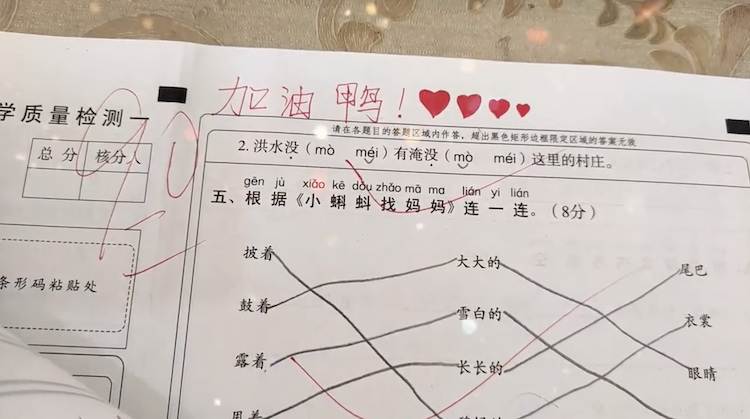 加油鸭！
学质量检测一
90
总分 核分人
条形码粘贴处
请在各题目的答题区域内作答，超出黑色矩形边框限定区域的答案无效
2. 洪水没（mò méi）有淹没（mò méi）这里的村庄。
gēn jù xiǎo kē dǒu zhǎo mā ma lián yi lián
五、根据《小蝌蚪找妈妈》连一连。（8分）
披着 大大的 尾巴
鼓着 雪白的 衣裳
露着 长长的 眼睛
甩着